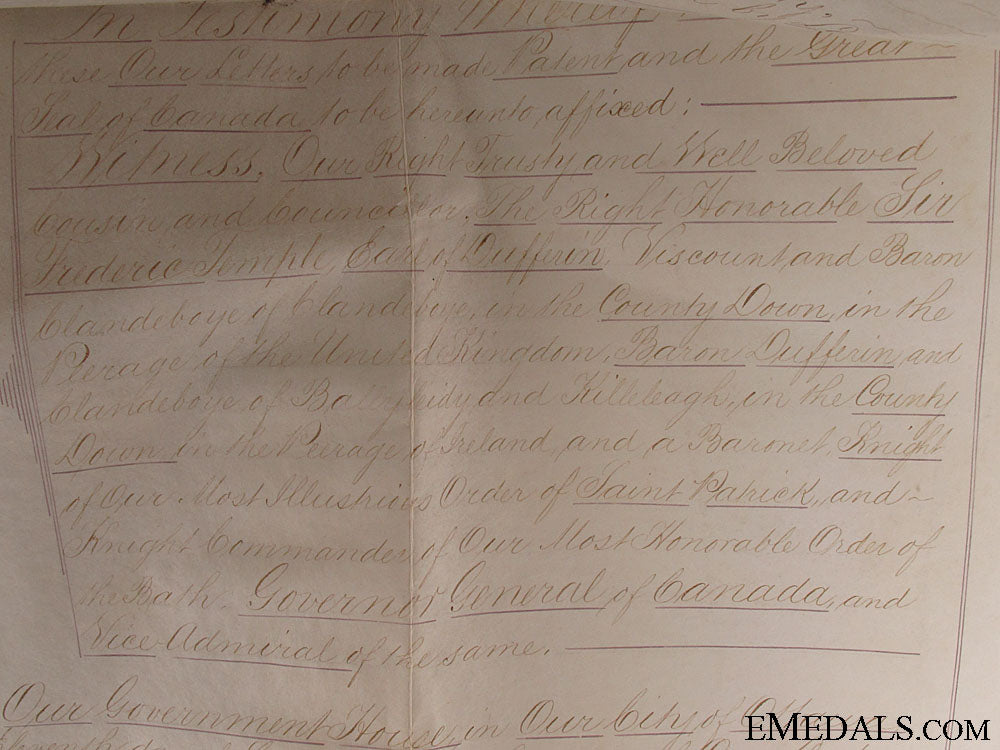 In Testimony Whereof
these Our Letters to be made Patent, and the Great
Seal of Canada to be hereunto affixed:
Witness, Our Right Trusty and Well Beloved
Cousin and Councillor, The Right Honorable Sir
Frederic Temple, Earl of Dufferin, Viscount and Baron
Clandeboye of Clandeboye, in the County Down, in the
Peerage of the United Kingdom, Baron Dufferin and
Clandeboye of Ballyleidy and Killeleagh, in the County
Down in the Peerage of Ireland, and a Baronet, Knight
of Our Most Illustrious Order of Saint Patrick, and
Knight Commander of Our Most Honorable Order of
the Bath. Governor General of Canada, and
Vice-Admiral of the same.
Our Government House, in Our City of
EMEDALS.COM